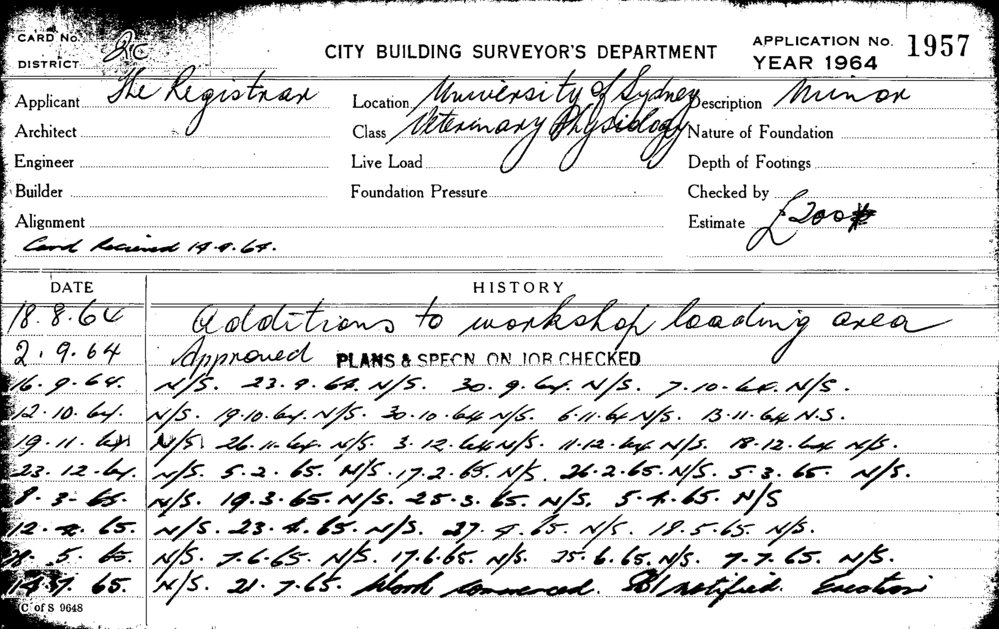 CARD No.
DISTRICT 2C
CITY BUILDING SURVEYOR'S DEPARTMENT
APPLICATION No. 1957
YEAR 1964
Applicant The Registrar Location University of Sydney Description Minor
Architect Class Veterinary Physiology Nature of Foundation
Engineer Live Load Depth of Footings
Builder Foundation Pressure Checked by
Alignment Estimate £200
Card Received 14.9.64.
DATE HISTORY
18.8.64 Additions to workshop loading area
2.9.64 Approved PLANS & SPECN. ON JOB CHECKED
16.9.64. N/S. 23.9.64. N/S. 30.9.64. N/S. 7.10.64. N/S.
12.10.64. N/S. 19.10.64. N/S. 30.10.64 N/S. 6.11.64 N/S. 13.11.64 N.S.
19.11.64 N/S 26.11.64. N/S. 3.12.64 N/S. 11.12.64 N/S. 18.12.64 N/S.
23.12.64. N/S. 5.2.65. N/S. 17.2.65. N/S. 26.2.65. N/S. 5.3.65. N/S.
9.3.65. N/S. 19.3.65. N/S. 25.3.65. N/S. 5.4.65. N/S
12.4.65. N/S. 23.4.65. N/S. 27.4.65. N/S. 18.5.65. N/S.
5.65. N/S. 7.6.65. N/S. 17.6.65. N/S. 25.6.65. N/S. 7.7.65. N/S.
7.65. N/S. 21.7.65. Work commenced. notified. Erection
C of S 9648